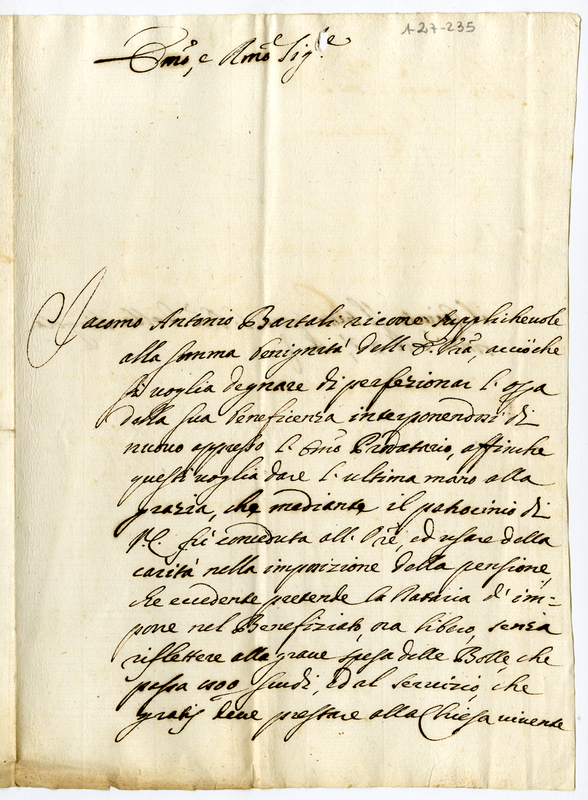 1-27-235
Emo, e Rmo Sig.re
Jacomo Antonio Bartali ricorre supplichevole
alla somma benignità dell' E. Vra, acciòche
si voglia degnare di perfezionar l' opa
della sua beneficenza interponendosi di
nuovo appresso l' Emo Prodatario, affinche
questi voglia dare l' ultima mano alla
grazia, che mediante il patrocinio di
V.E. fù conceduta all' Ore, ed usare della
carità nella imposizione della pensione,
che eccedente pretende la Dataria d' im=
porre nel Benefiziato, ora libero, senza
riflettere alla grave spesa delle Bolle, che
passa scudi, ed al servizio, che
gratis deve prestare alla Chiesa vivente